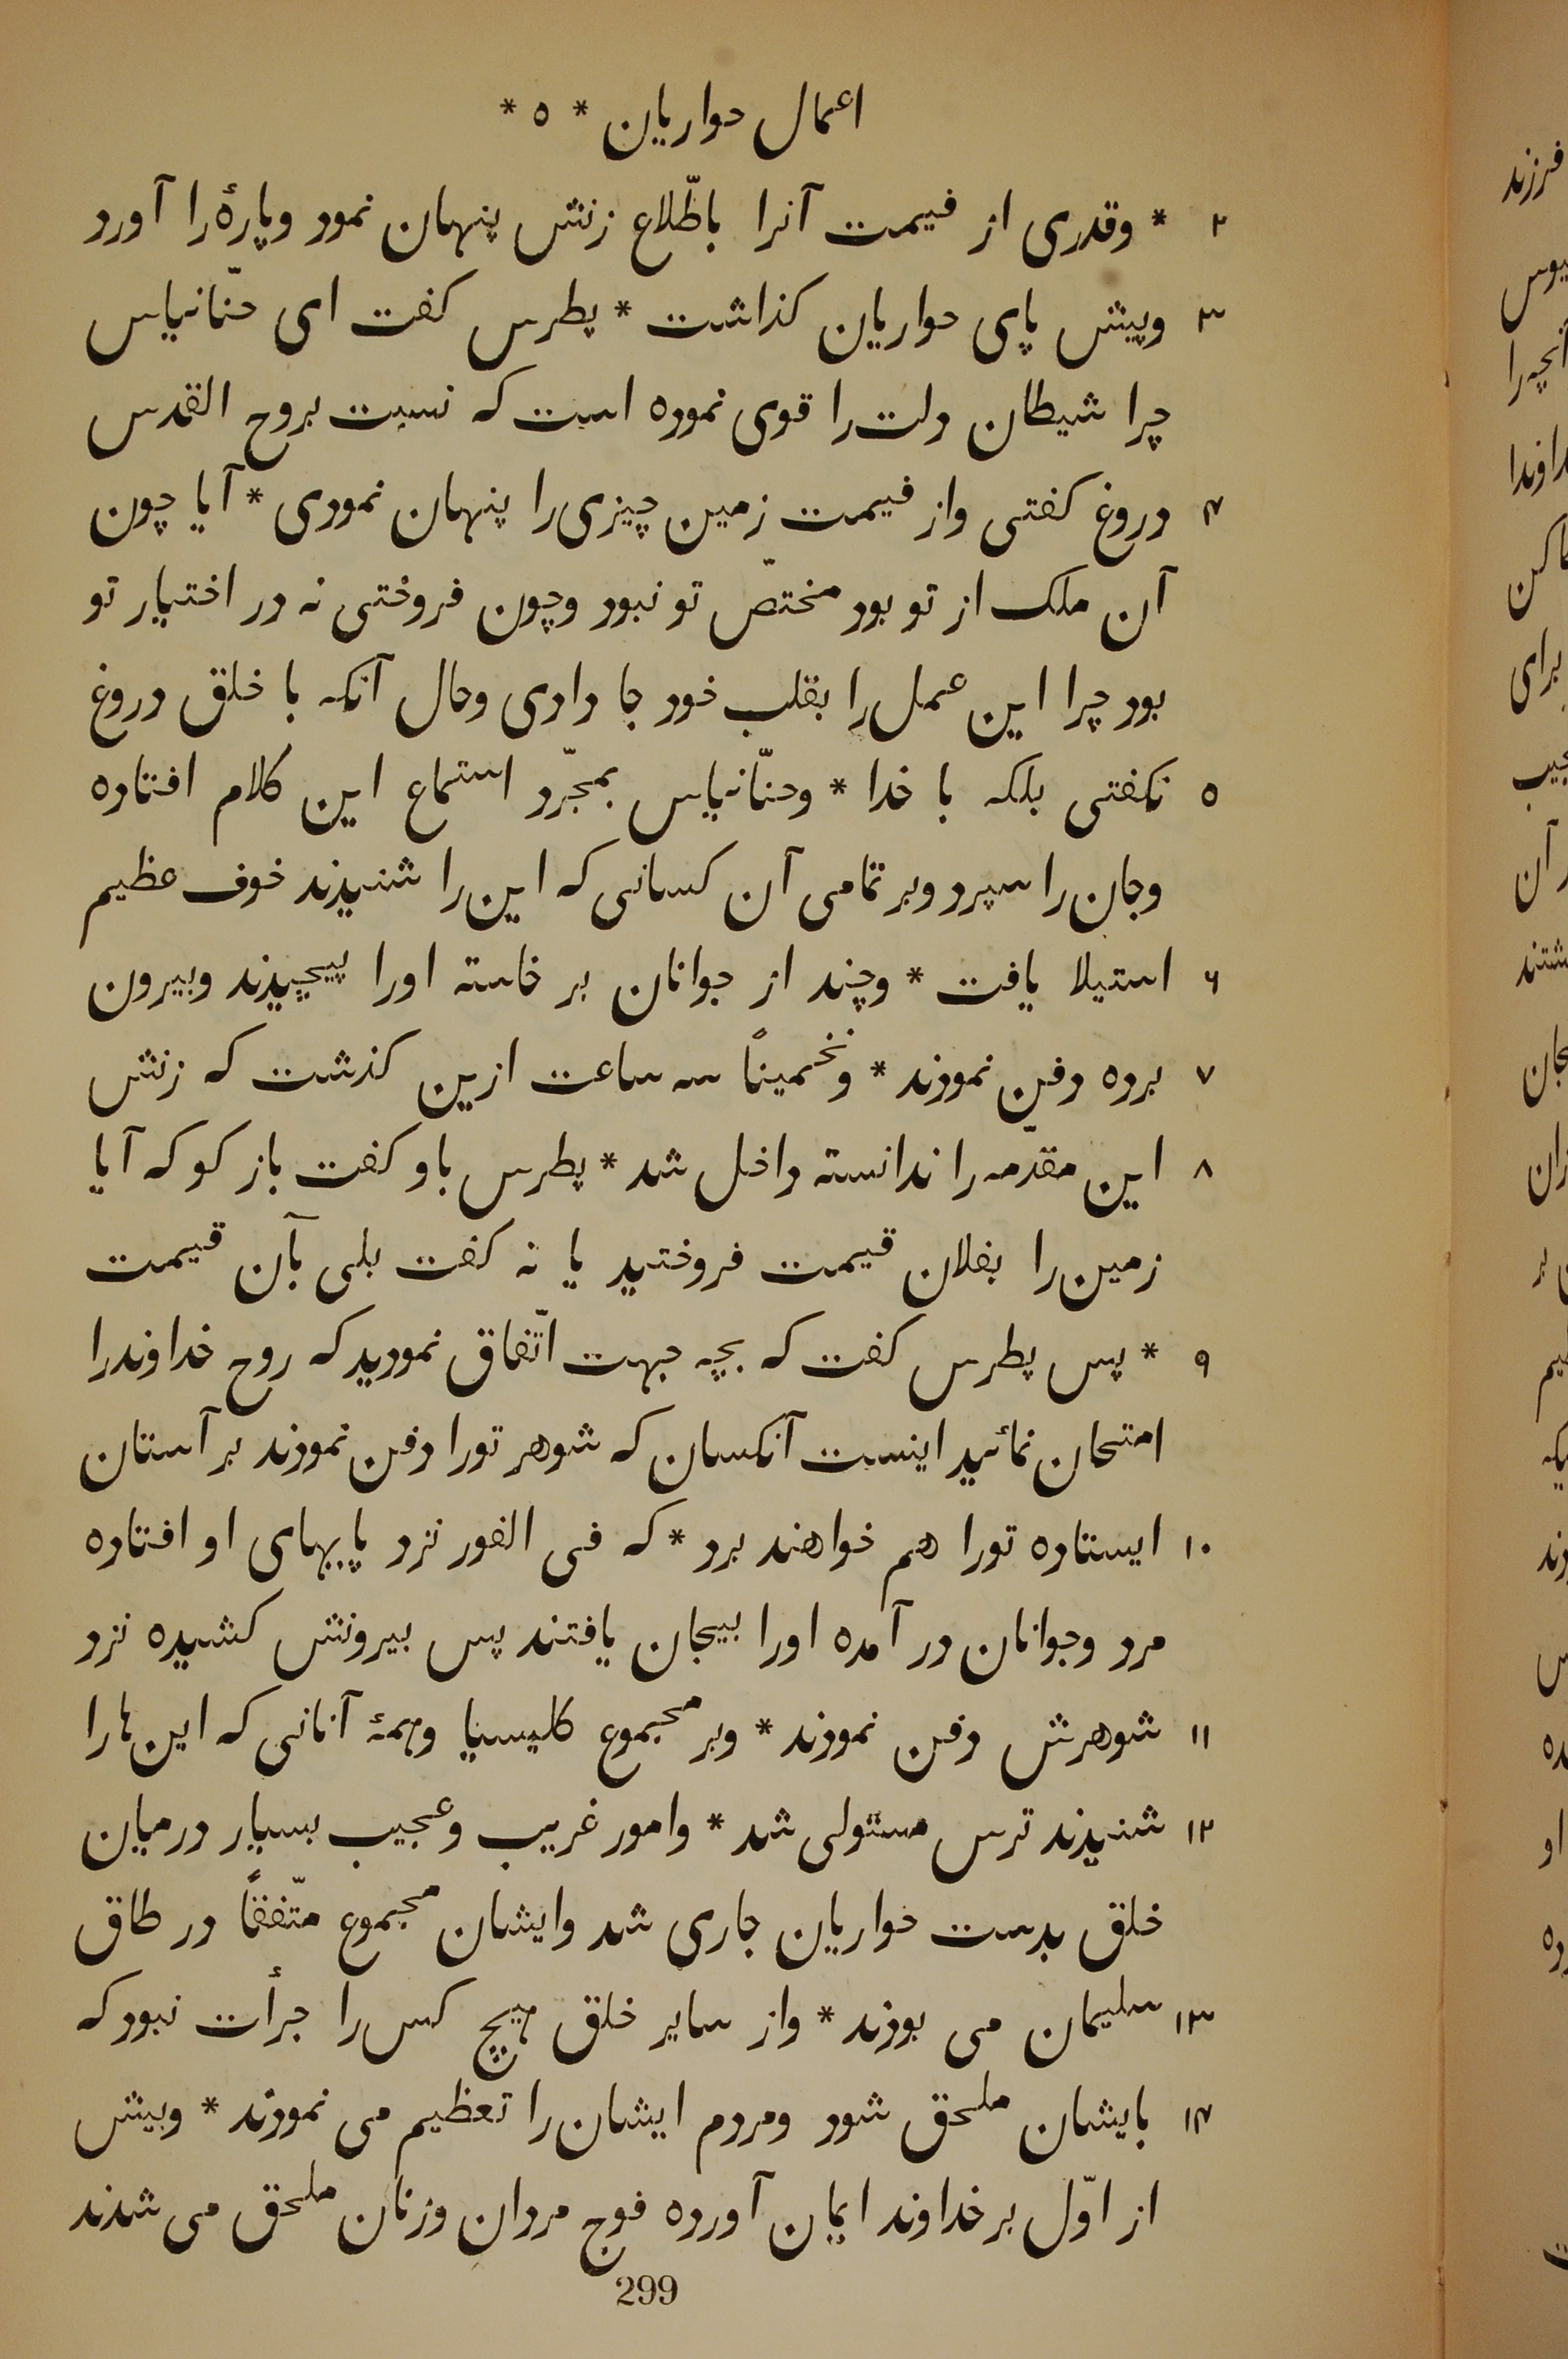 اعمال حواریان * ٥ *
٢ * وقدری از قیمت آنرا باطّلاع زنش پنهان نمود وپارهٔ را آورد
٣ وپیش پای حواریان کذاشت * پطرس کفت ای حنّانیاس
چرا شیطان دلت را قوی نموده است که نسبت بروح القدس
۴ دروغ کفتی واز قیمت زمین چیزی را پنهان نمودی * آیا چون
آن ملک از تو بود مختصّ تو نبود وچون فروختی نه در اختیار تو
بود چرا این عمل را بقلب خود جا دادی وحال آنکه با خلق دروغ
٥ نکفتی بلکه با خدا * وحنّانیاس بمجرّد استماع این کلام افتاده
وجان را سپرد وبر تمامی آن کسانی که این را شنیدند خوف عظیم
۶ استیلا یافت * وچند از جوانان بر خاسته اورا پیچیدند وبیرون
٧ برده دفن نمودند * وتخمیناً سه ساعت ازین کذشت که زنش
٨ این مقدّمه را ندانسته داخل شد * پطرس باو کفت باز کو که آیا
زمین را بفلان قیمت فروختید یا نه کفت بلی بآن قیمت
٩ * پس پطرس کفت که بچه جهت اتّفاق نمودید که روح خداوندرا
امتحان نمائید اینست آنکسان که شوهر تورا دفن نمودند بر آستان
١٠ ایستاده تورا هم خواهند برد * که فی الفور نزد پایهای او افتاده
مرد وجوانان در آمده اورا بیجان یافتند پس بیرونش کشیده نزد
١١ شوهرش دفن نمودند * وبر مجموع کلیسیا وهمهٔ آنانی که این ها را
١٢ شنیدند ترس مستولی شد * وامور غریب وعجیب بسیار درمیان
خلق بدست حواریان جاری شد وایشان مجموع متّفقاً در طاق
١٣ سلیمان می بودند * واز سایر خلق هیچ کس را جرأت نبود که
١۴ بایشان ملحق شود ومردم ایشان را تعظیم می نمودند * وبیش
از اوّل بر خداوند ایمان آورده فوج مردان وزنان ملحق می شدند
299